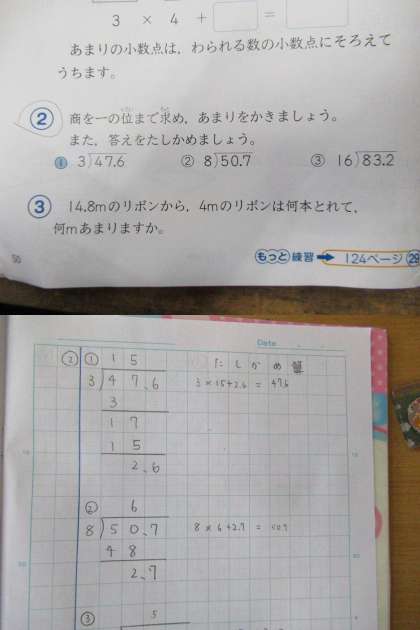 3 × 4 + □ = □
あまりの小数点は，わられる数の小数点にそろえて
うちます。
2 商を一の位まで求め，あまりをかきましょう。
また，答えをたしかめましょう。
① 3)47.6 ② 8)50.7 ③ 16)83.2
3 14.8mのリボンから，4mのリボンは何本とれて，
何mあまりますか。
もっと練習 124ページ
Date
② ① 15 たしかめ算
3)47.6 3×15+2.6=47.6
3
17
15
2.6
② 6
8)50.7 8×6+2.7=50.7
48
2.7
③ 5